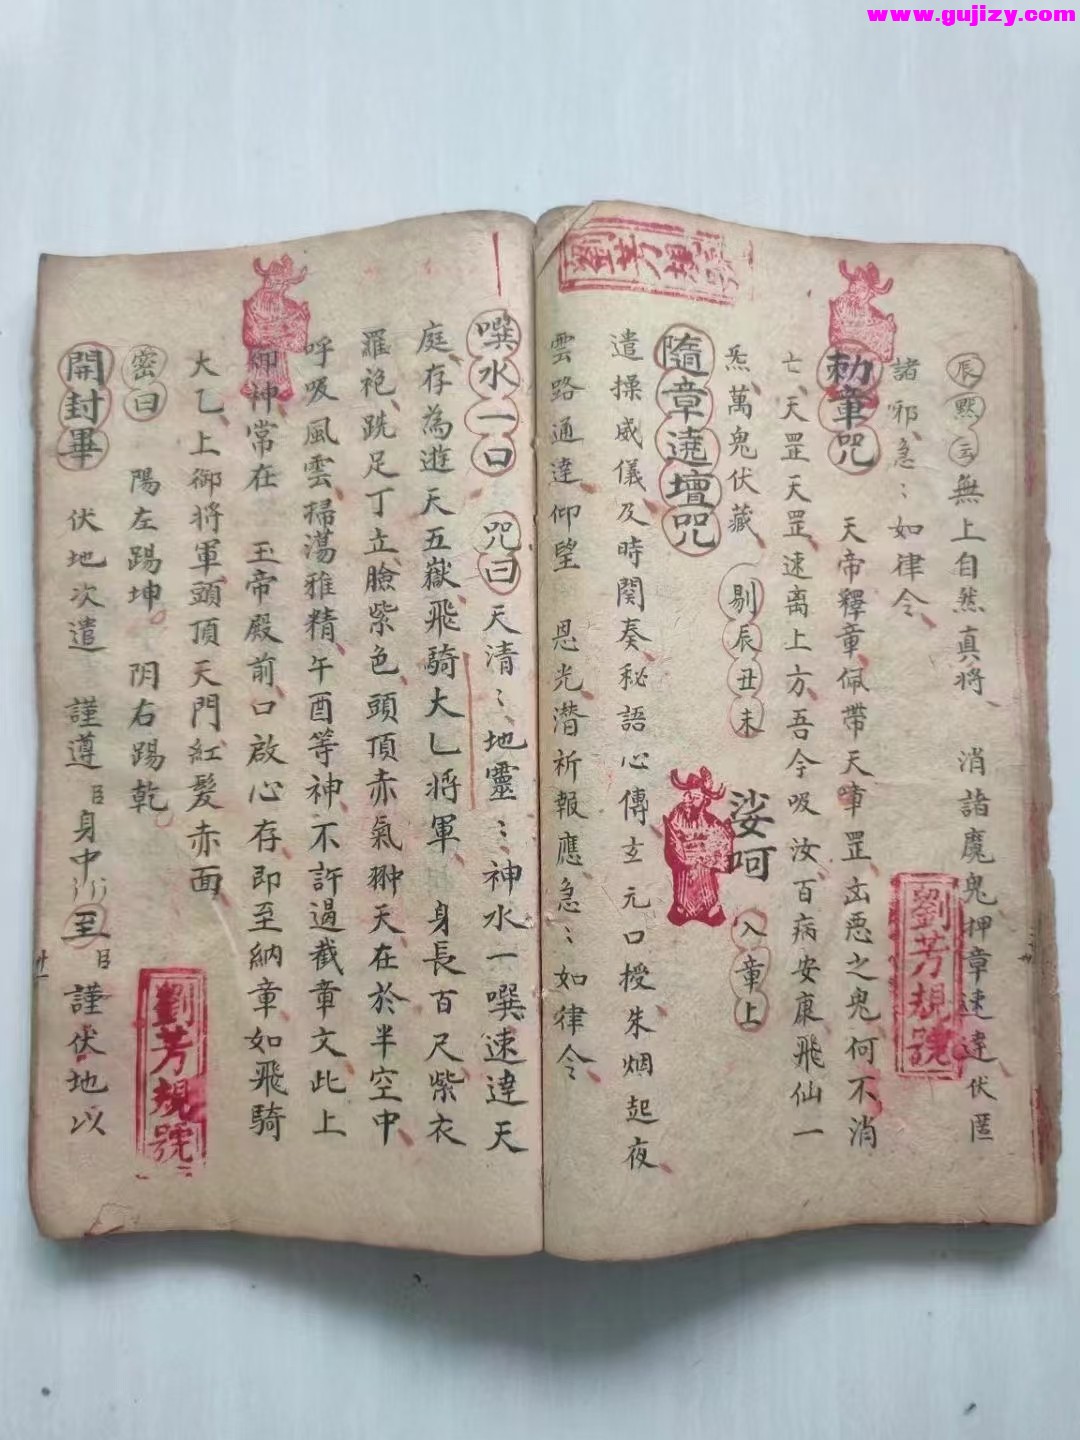 www.gujizy.com
辰默云無上自然真將、消諸魔鬼押章速達、伏匿
諸邪、急〻如律令、
勅章咒 天帝釋章、佩帶天罡、凶惡之鬼、何不消
亡、天罡天罡、速离上方、吾今吸汝、百病安康、飛仙一
炁、萬鬼伏藏、 剔辰丑未 娑呵 入章上
隨章遶壇咒
遣操威儀、及時関奏、秘語心傳、玄元口授、朱烟起夜、
雲路通達、仰望 恩光、潛祈報應、急〻如律令、
噀水一口 咒曰 天清〻、地靈〻、神水一噀、速達天
庭、存為遊天五嶽、飛騎大乚將軍、身長百尺、紫衣
羅袍、跣足丁立、臉紫色、頭頂赤氣、翀天在於半空中、
呼吸風雲、掃蕩雅精、午酉等神、不許過截章文、此上
御神、常在 玉帝殿前、口啟心存、即至納章、如飛騎
大乙、上御將軍、頭頂天門、紅髮赤面、
密曰 陽左踢坤。阴右踢乾。
開封畢 伏地次遣 謹遵臣身中 至臣謹伏地以
劉芳規號
劉芳規號
劉芳規號